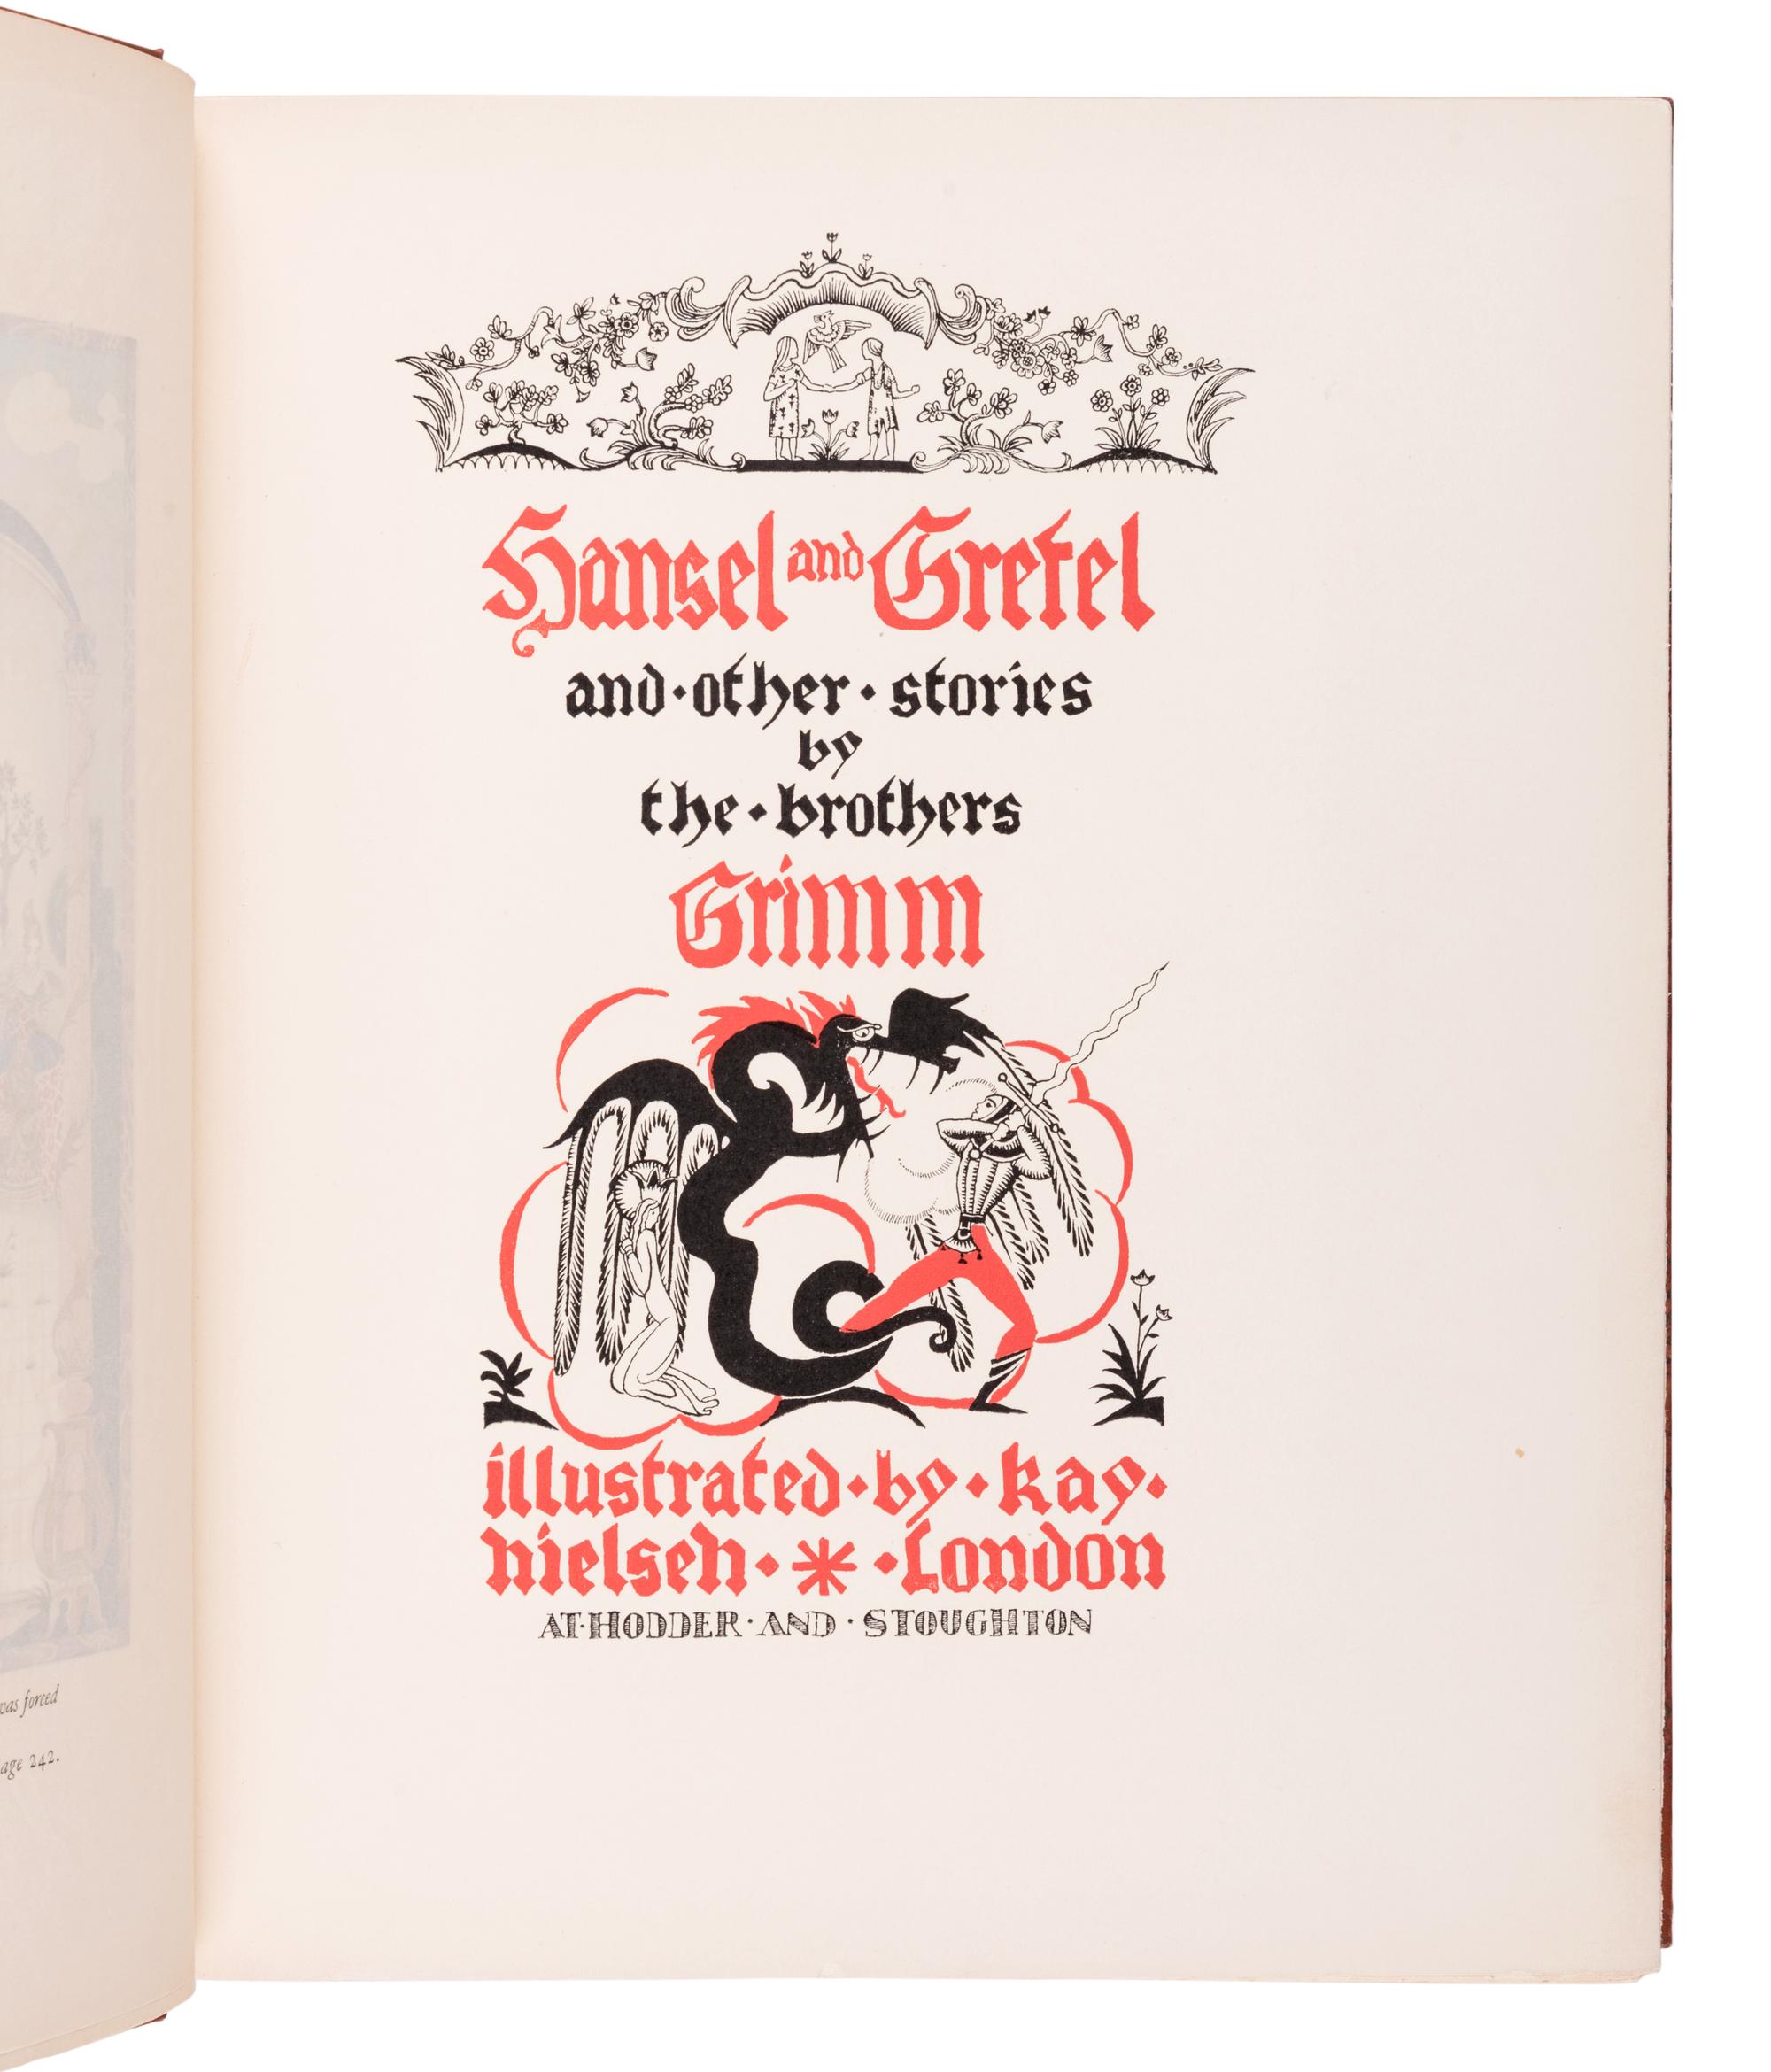 was forced
age 242.
Hansel and Gretel
and·other·stories
by
the·brothers
Grimm
illustrated·by·kay·
nielsen·*·London
AT·HODDER·AND·STOUGHTON